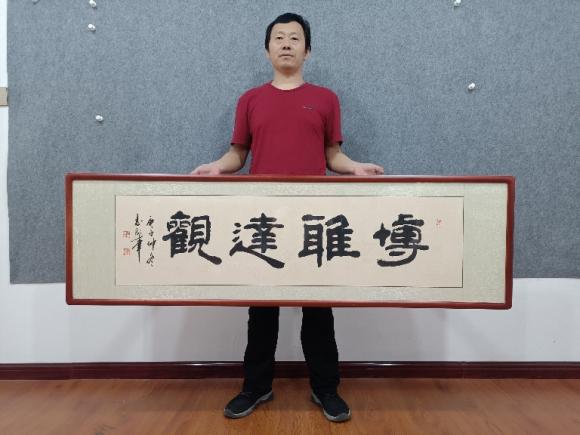 博雅達觀
庚子仲冬